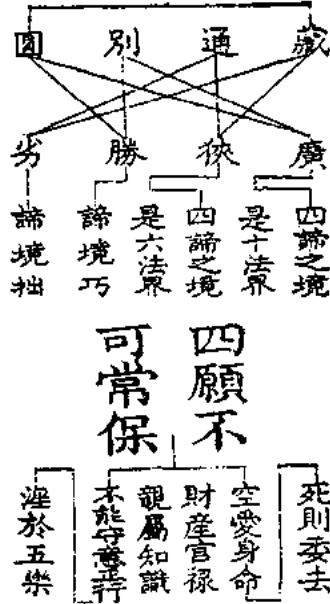 藏 通 別 圓
廣 狹 勝 劣
四諦之境
是十法界
四諦之境
是六法界
諦境巧
諦境拙
四願不
可常保
死則委去
空愛身命
財產官祿
親屬知識
不能守意正行
婬於五樂